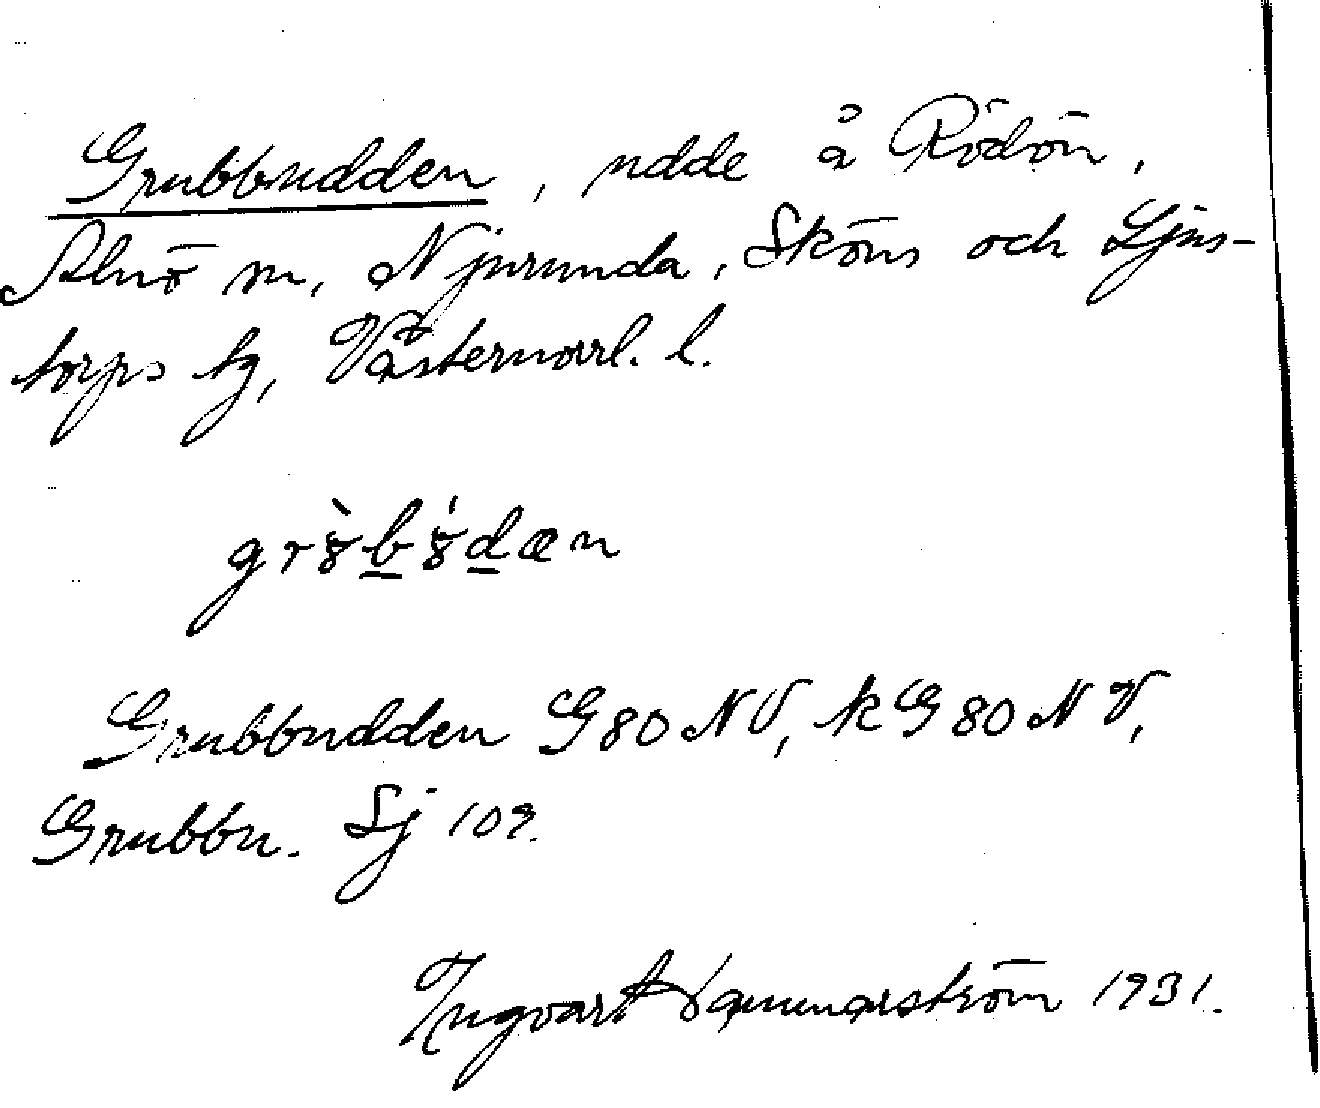 Grubbudden, udde å Rödön,
Alnö sn, Njurunda, Sköns och Ljus-
torps tg, Västernorrl. l.
grȣ̀bȣ́dæn
Grubbudden G80NV, kG80NV,
Grubbu. Sj 109.
Ingvart Hammarström 1931.